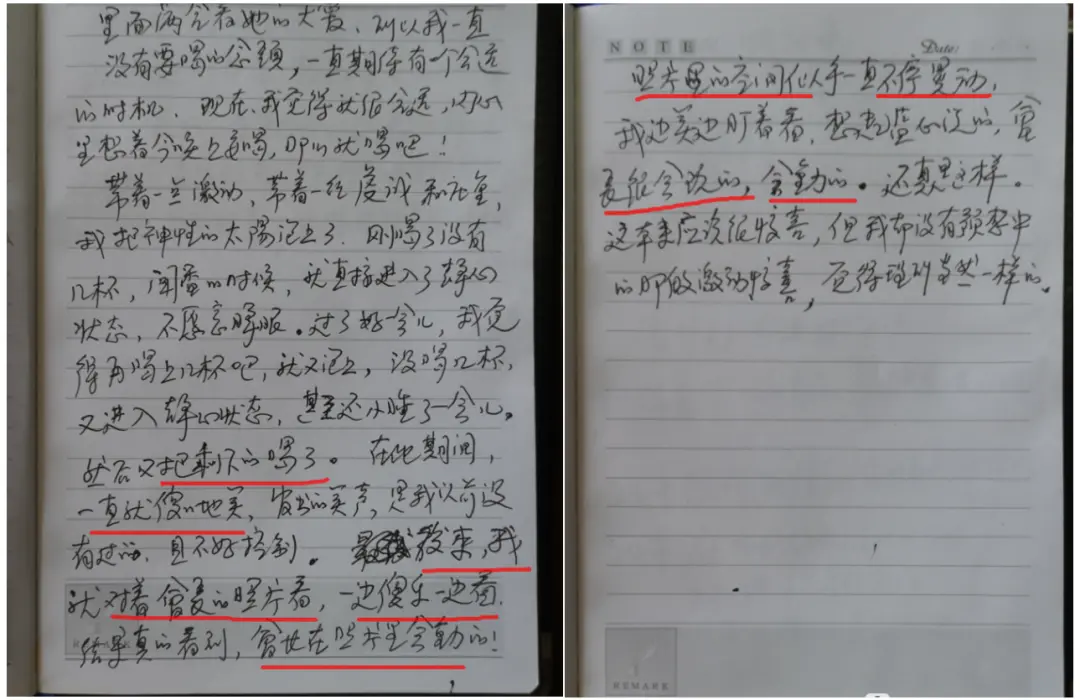 里面满含着她的大爱，所以我一直
没有要喝的念头，一直期待有一个合适
的时机．现在，我觉得就很合适，内心
里想着今晚上要喝，即以就喝吧！
带着一点激动，带着一丝虔诚和
我把神性的太陽泡上了．刚喝了没有
几杯，闻香的时候，就直接进入了静心
状态，不愿意睁眼。过了好一会儿，我觉
得再喝上几杯吧，就又泡上，没喝几杯，
又进入静心状态，甚至还小睡了一会儿。
然后又把剩下的喝了。在此期间，
一直就傻傻地笑，发出的笑声，是我以前没
有过的，且不好控制。后来，我
就对着會長的照片看，一边傻乐一边看．
结果真的看到，會长在照片里会動的！
REMARK
NOTE
Date:
照片里的空间似乎一直不停晃动，
我边笑边盯着看，想起蓝心说的，會
長能会说的，会動的。还真是这样。
这本来应该很惊喜，但我却没有预想中
的那般激动惊喜，觉得理所当然一样的。
REMARK